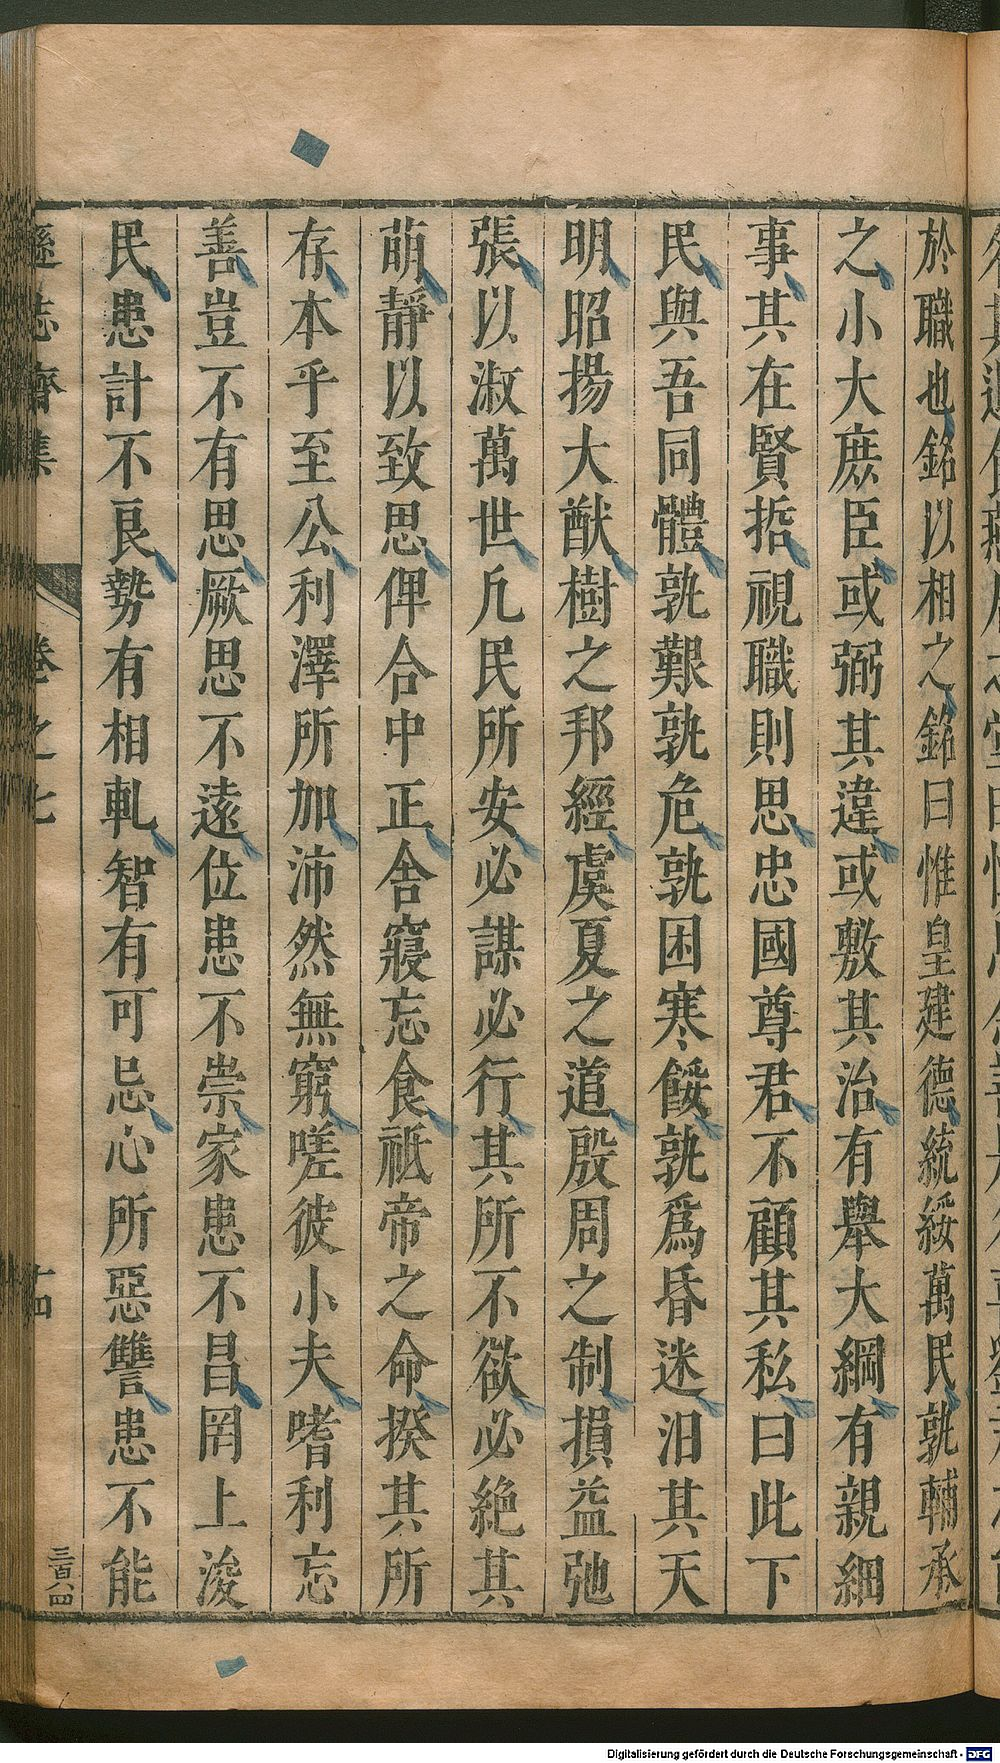 於職也銘以相之銘曰惟皇建德統綏萬民孰輔承
之小大庶臣或弼其違或敷其治有舉大綱有親細
事其在賢哲視職則思忠國尊君不顧其私曰此下
民與吾同體孰艱孰危孰困寒餒孰爲昏迷汨其天
明昭揚大猷樹之邦經虞夏之道殷周之制損益弛
張以淑萬世凡民所安必謀必行其所不欲必絶其
萌靜以致思俾合中正舍寢忘食祗帝之命揆其所
存本乎至公利澤所加沛然無窮嗟彼小夫嗜利忘
善豈不有思厥思不遠位患不崇家患不昌罔上浚
民患計不良勢有相軋智有可忌心所惡讐患不能
遜志齋集
卷之七
十四
三百八四
Digitalisierung gefördert durch die Deutsche Forschungsgemeinschaft - DFG